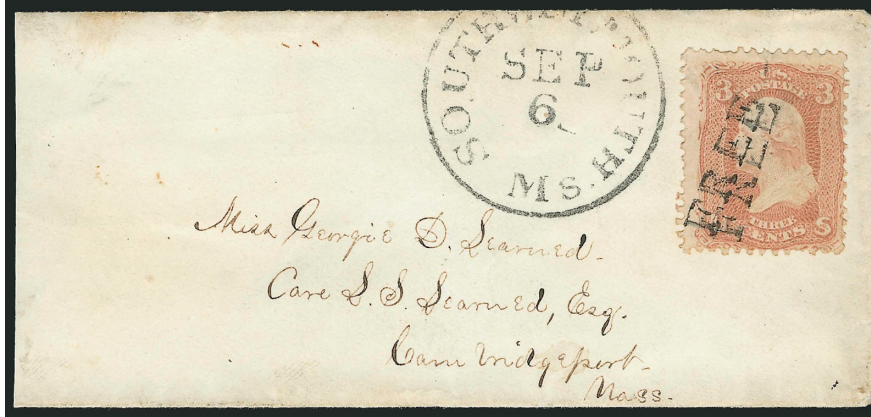 SOUTHWEYMOUTH
SEP
6
Ms.
U.S.
POSTAGE
3 3
THREE
CENTS
FREE
FREE
Miss Georgie D. Learned.
Care L. S. Learned, Esq.
Cambridgeport.
Mass.